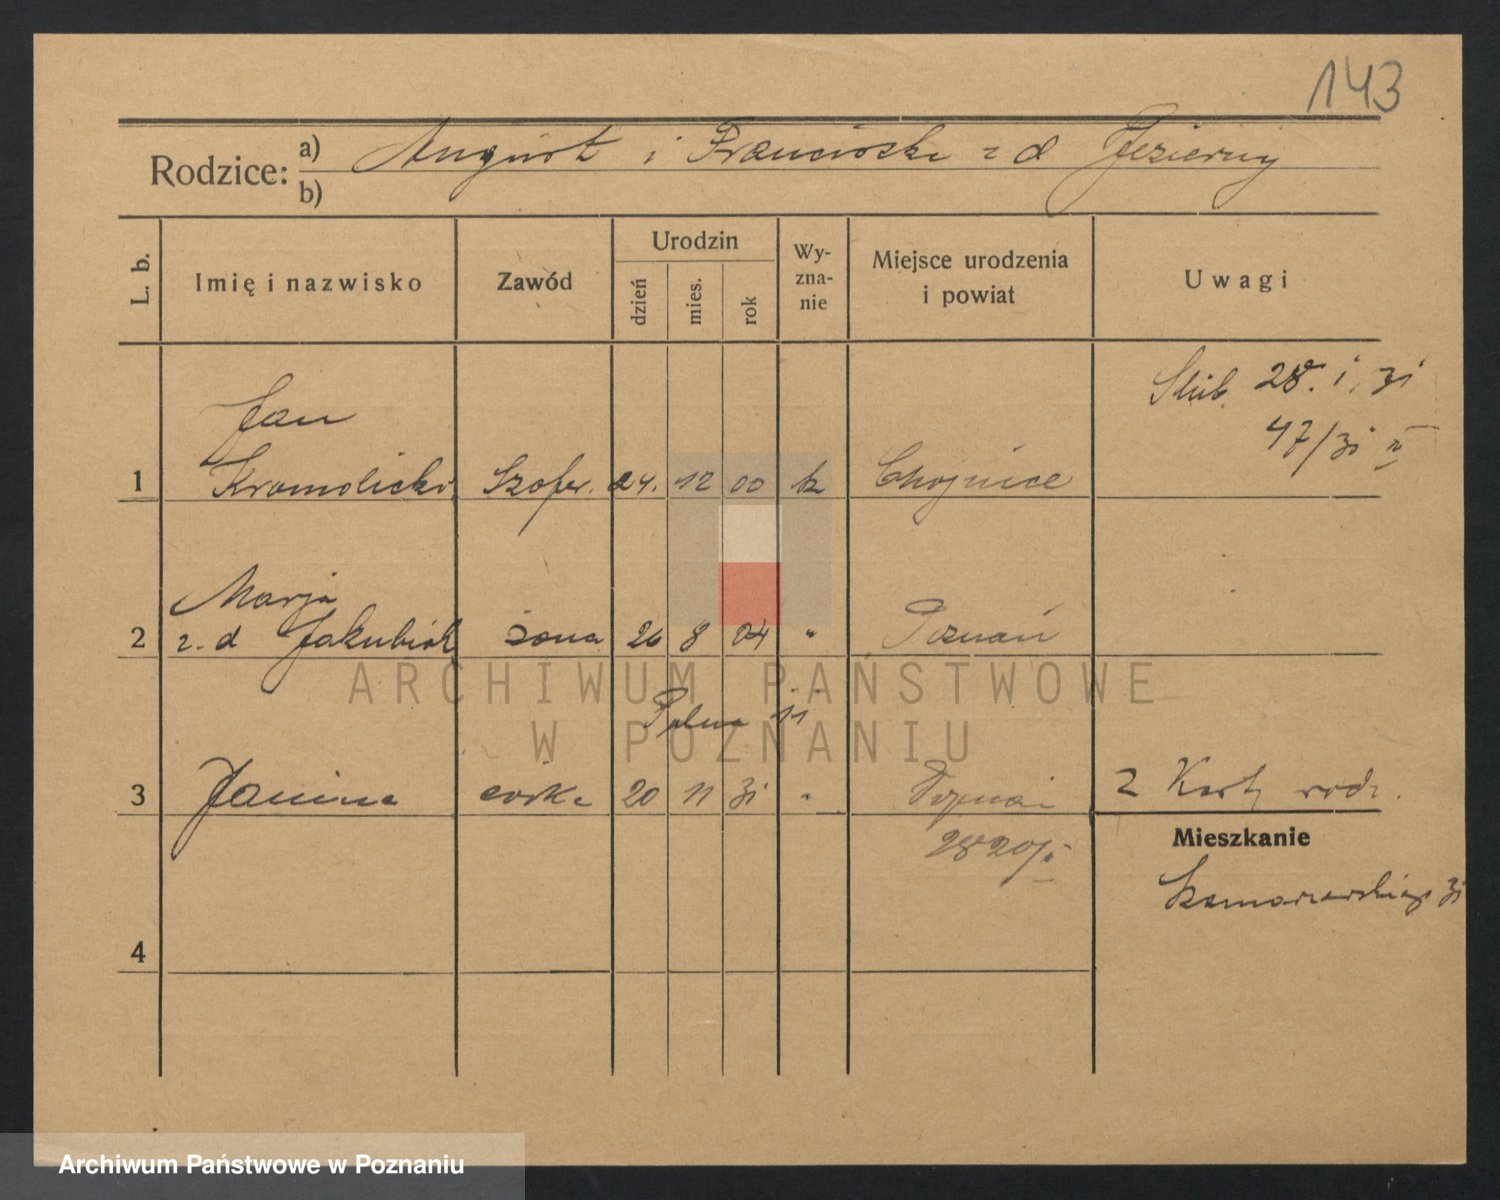 143
Rodzice: a) August i Franciszka z d Jezierny
b)
L. b.
Imię i nazwisko
Zawód
Urodzin
dzień
mies.
rok
Wy-
zna-
nie
Miejsce urodzenia
i powiat
Uwagi
Ślub. 28. i. 31
47/31 II
Jan
1 Kromolicki Szofer. 24. 12 00 k Chojnice
Marja
2 z. d Jakubiak żona 26 8 04 " Poznań
ARCHIWUM PAŃSTWOWE
W POZNANIU
Polna 11
3 Janina córka 20 11 31 " Poznań 2 Karty rodz.
2820/II
Mieszkanie
31
4
Archiwum Państwowe w Poznaniu